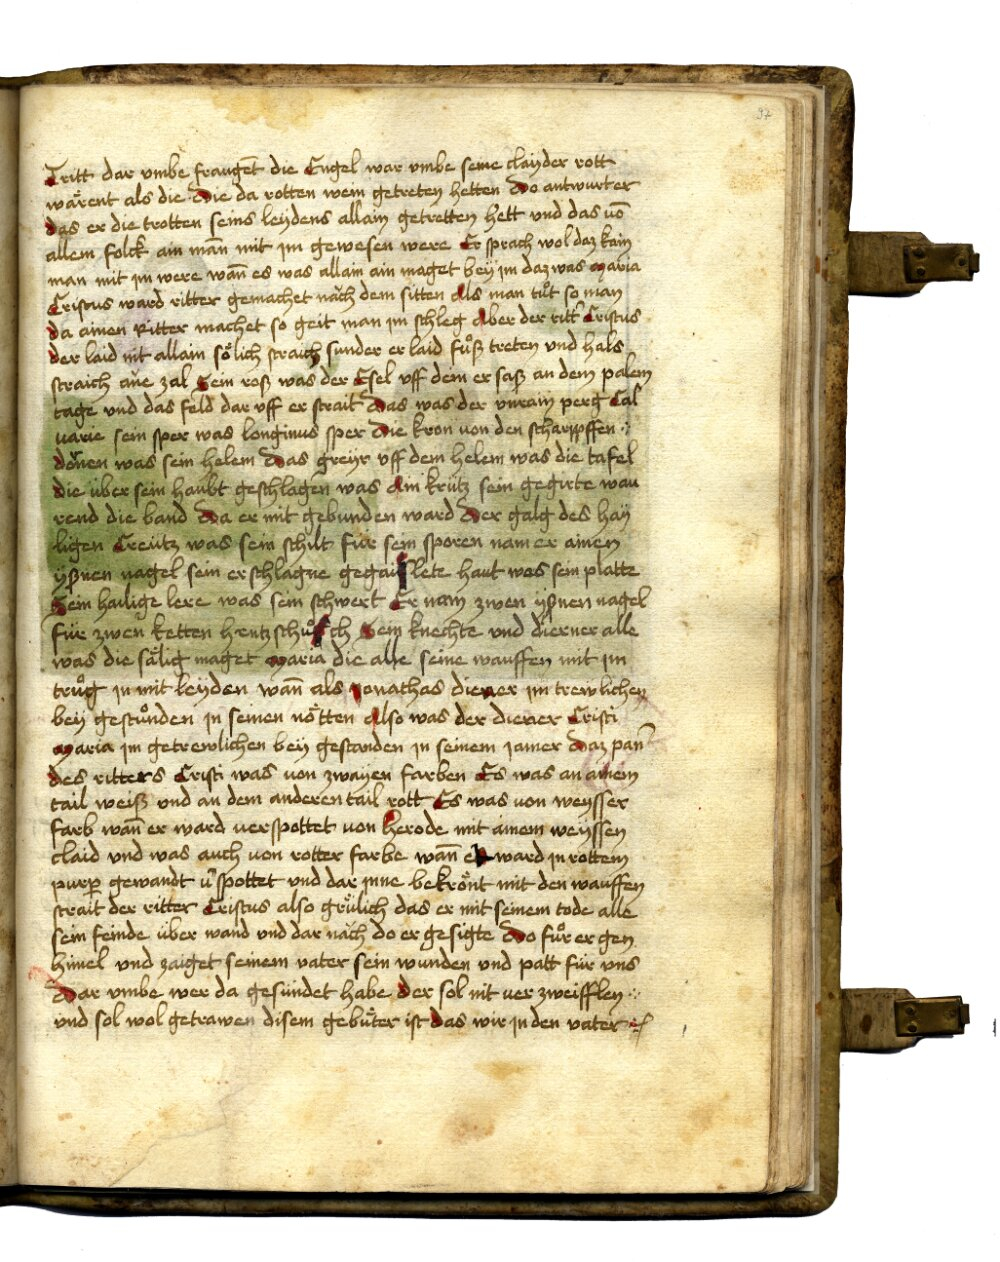 97
Tritt dar vmbe frauget̄ die Engel war vmbe seine clayder rott
wärent als die Die da rotten wein getretten hetten Do antwurt er
das er die trotten seins leydens allain getretten hett vnd das vō
allem folck ain mān mit im gewesen were Er sprach wol daz kain
man mit im were wān es was allain ain maget bey im daz was maria
Cristus ward ritter gemachet nǎch dem sitten Als man tůt so man
da ainen Ritter machet so geit man im schleg Aber der ritt̓ Cristus
der laid nit allain sőlich straich sunder er laid fůß tretten vnd hals
straich ane zal Sein roß was der Esel vff dem er saß an dem palem
tage vnd das feld dar vff er strait Das was der vnrain perg Cal
uarie sein sper was longinus sper Die kron von den scharpffen
dőnen was sein helem Das greyr vff dem helem was die tafel
die über sein haubt geschlagen was Ain krütz sein gegirte wau
rend die band Da er mit gebunden ward Der galg des hay
ligen Creütz was sein schilt Für sein sporen nam er ainen
yßnen nagel sein erschlagne gegaislete haut was sein platte
Sein hailige lere was sein schwert Er nam zwen yßnen nagel
für zwen ketten hentzschůch Sein knechte vnd dierner alle
was die sälig maget maria die alle seine wauffen mit im
trůg in mit leyden wān als yonathas diener im trewlichen
bey gestůnden in seinen nőtten Also was der diener Cristi
maria im getrewlichen bey gestanden in seinem iamer Daz pan̄
des ritters Cristi was von zwayen farben Es was an ainem
tail weiß vnd an dem anderen tail rott Es was von weysser
farb wān er ward verspottet von herode mit ainem weyssen
claid vnd was auch von rotter farbe wān er ward in rottem
purp̄ gewandt v̓spottet vnd dar inne bekrőnt mit den wauffen
strait der ritter Cristus also grülich das er mit seinem tode alle
sein feinde über wand vnd dar nǎch do er gesigte Do fůr er gen
himel vnd zaiget seinem vater sein wunden vnd patt für vns
Dar vmbe wer da gesündet habe der sol nit ver zweifflen
vnd sol wol getrawen disem gebůter ist das wir in den vater